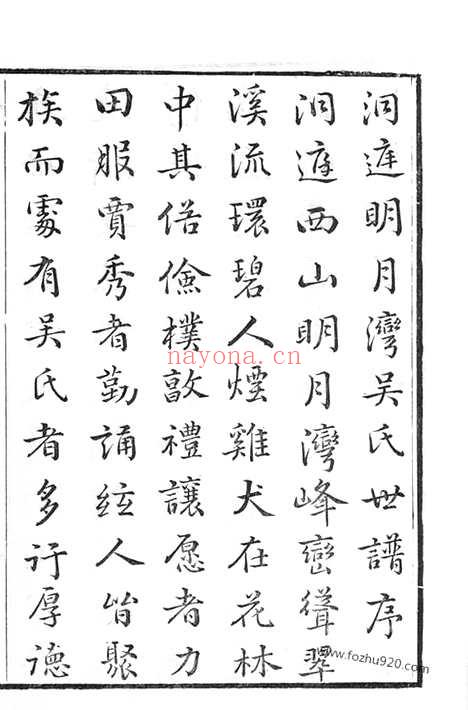 洞庭明月灣吳氏世譜序
洞庭西山明月灣峰巒聳翠
溪流環碧人煙雞犬在花林
中其俗儉樸敦禮讓愿者力
田服賈秀者勤誦絃人皆聚
族而處有吳氏者多行厚德
nayona.cn
www.fozhu920.com